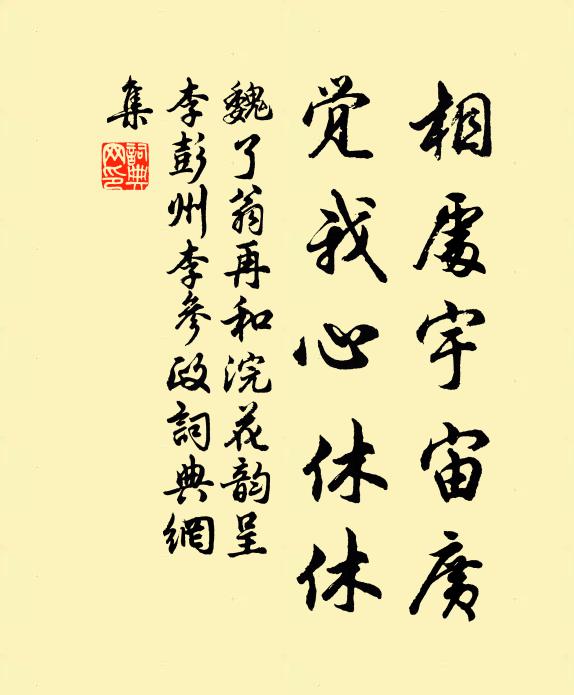 相處宇宙廣
覺我心休休
魏了翁再和浣花韵呈
李彭州李參政詞典網
集
詞典网印